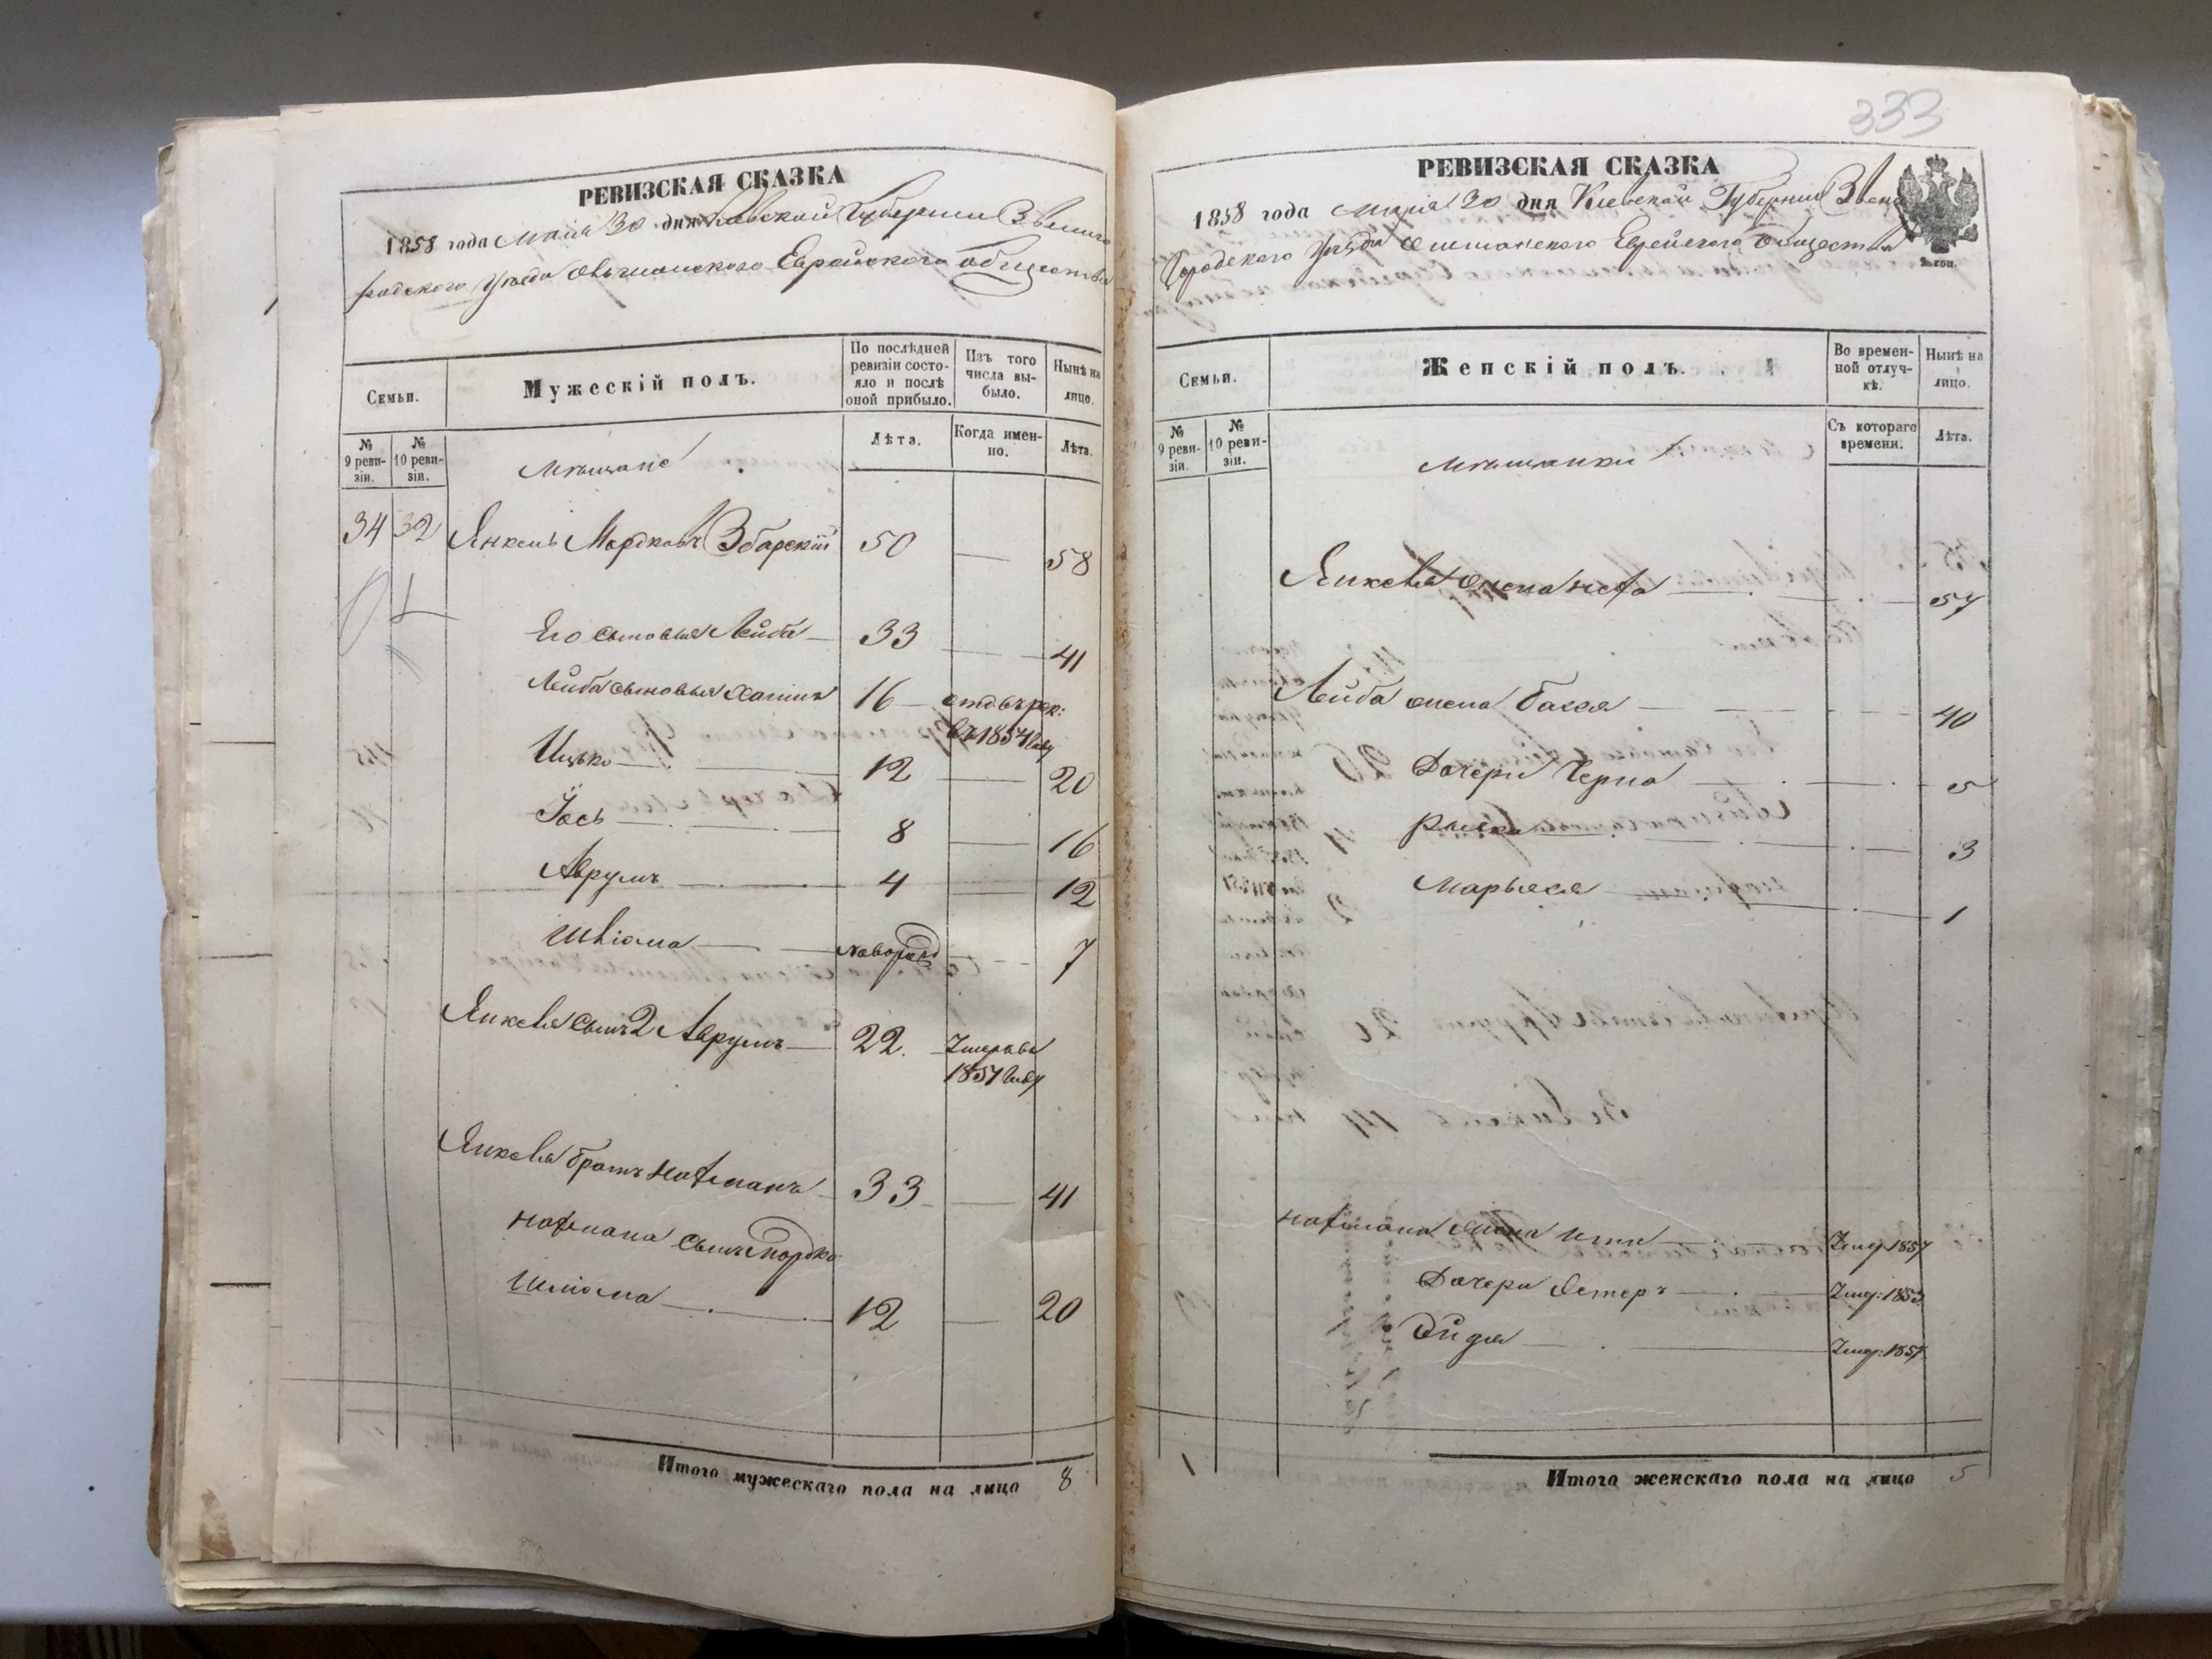 РЕВИЗСКАЯ СКАЗКА
1858 года мая 30 дня Киевской Губернии Звениго
родского Уезда Еврейского общества
Семьи.
Мужескій полъ.
По послѣдней ревизіи состояло и послѣ оной прибыло.
Изъ того числа выбыло.
Нынѣ на лицо.
№ 9 ревизіи.
№ 10 ревизіи.
Мѣщане
Лѣта.
Когда именно.
Лѣта.
34 32 Янкель Мордковъ Збарскій 50 — 58
Его сыновья Лейба — 33 — 41
Лейба сыновья 16 — отд въ рек:
въ 1854 году
Ицько — 12 — 20
Іось — 8 — 16
Аврумъ — 4 — 12
Шліома — новорожд — 7
Янкеля сынъ 2 Аврумъ — 22. Умеръ въ
1857 году
Янкеля братъ Нахманъ 33 — 41
Нахмана сынъ Мордко
Шліома — 12 — 20
Итого мужескаго пола на лицо 8
333
РЕВИЗСКАЯ СКАЗКА
1858 года мая 30 дня Киевской Губернии Звени
городского Уезда Еврейского общества
2 коп.
Семьи.
Женскій полъ.
Во временной отлучкѣ.
Нынѣ на лицо.
№ 9 ревизіи.
№ 10 ревизіи.
Мѣщанки
Съ котораго времени.
Лѣта.
Янкеля жена — 57
Лейба жена Бася — 40
Дочери Черна — 5
Рыся — 3
Марьяся — 1
Нахмана жена — Умер 1857
Дочери Эстеръ — Умер: 1853
— Умер: 1857
Итого женскаго пола на лицо 5